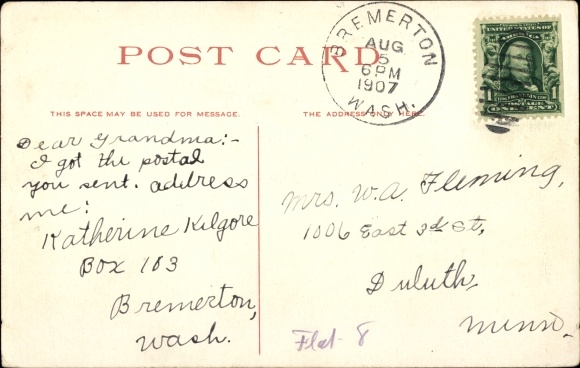 POST CARD
BREMERTON
AUG
5
6 PM
1907
WASH.
THIS SPACE MAY BE USED FOR MESSAGE.
THE ADDRESS ONLY HERE.
Dear Grandma:-
I got the postal
you sent. address
me:
Katherine Kilgore
Box 183
Bremerton,
Wash.
Mrs. W.A. Fleming,
1006 East 3d St,
Duluth,
Minn.
Flat 8